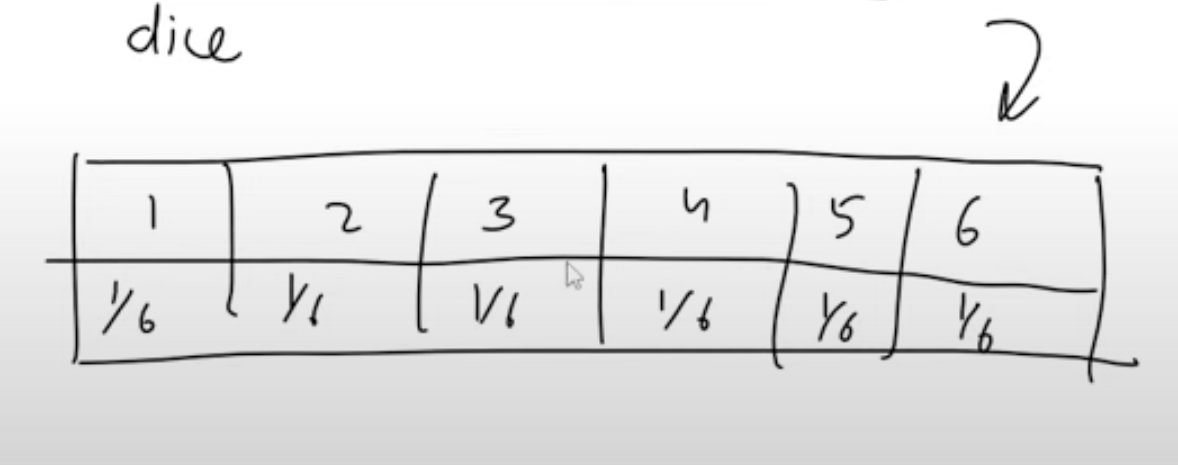 dice
1 2 3 4 5 6
1/6 1/6 1/6 1/6 1/6 1/6